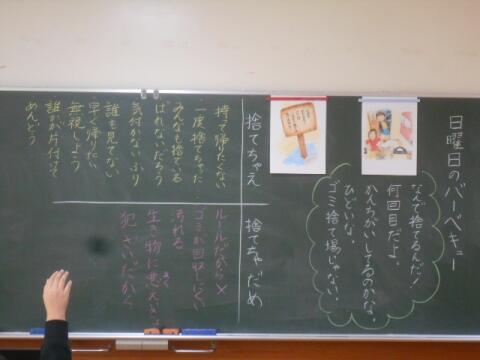 日曜日のバーベキュー
なんで捨てるんだ!
何回目だよ。
かんちがいしてるのかな。
ひどいな。
ゴミ捨て場じゃない。
捨てちゃえ
持って帰たくない
一度捨てちゃた
みんなも捨ている
ばれないだろう
気付かないふり
誰も見てない
早く帰りたい
無視しよう
誰かが片付って
めんどう
捨てちゃだめ
ルールだから×
ゴミが回収しにくい
汚れる
生き物に悪えいきょう
犯ざいだから